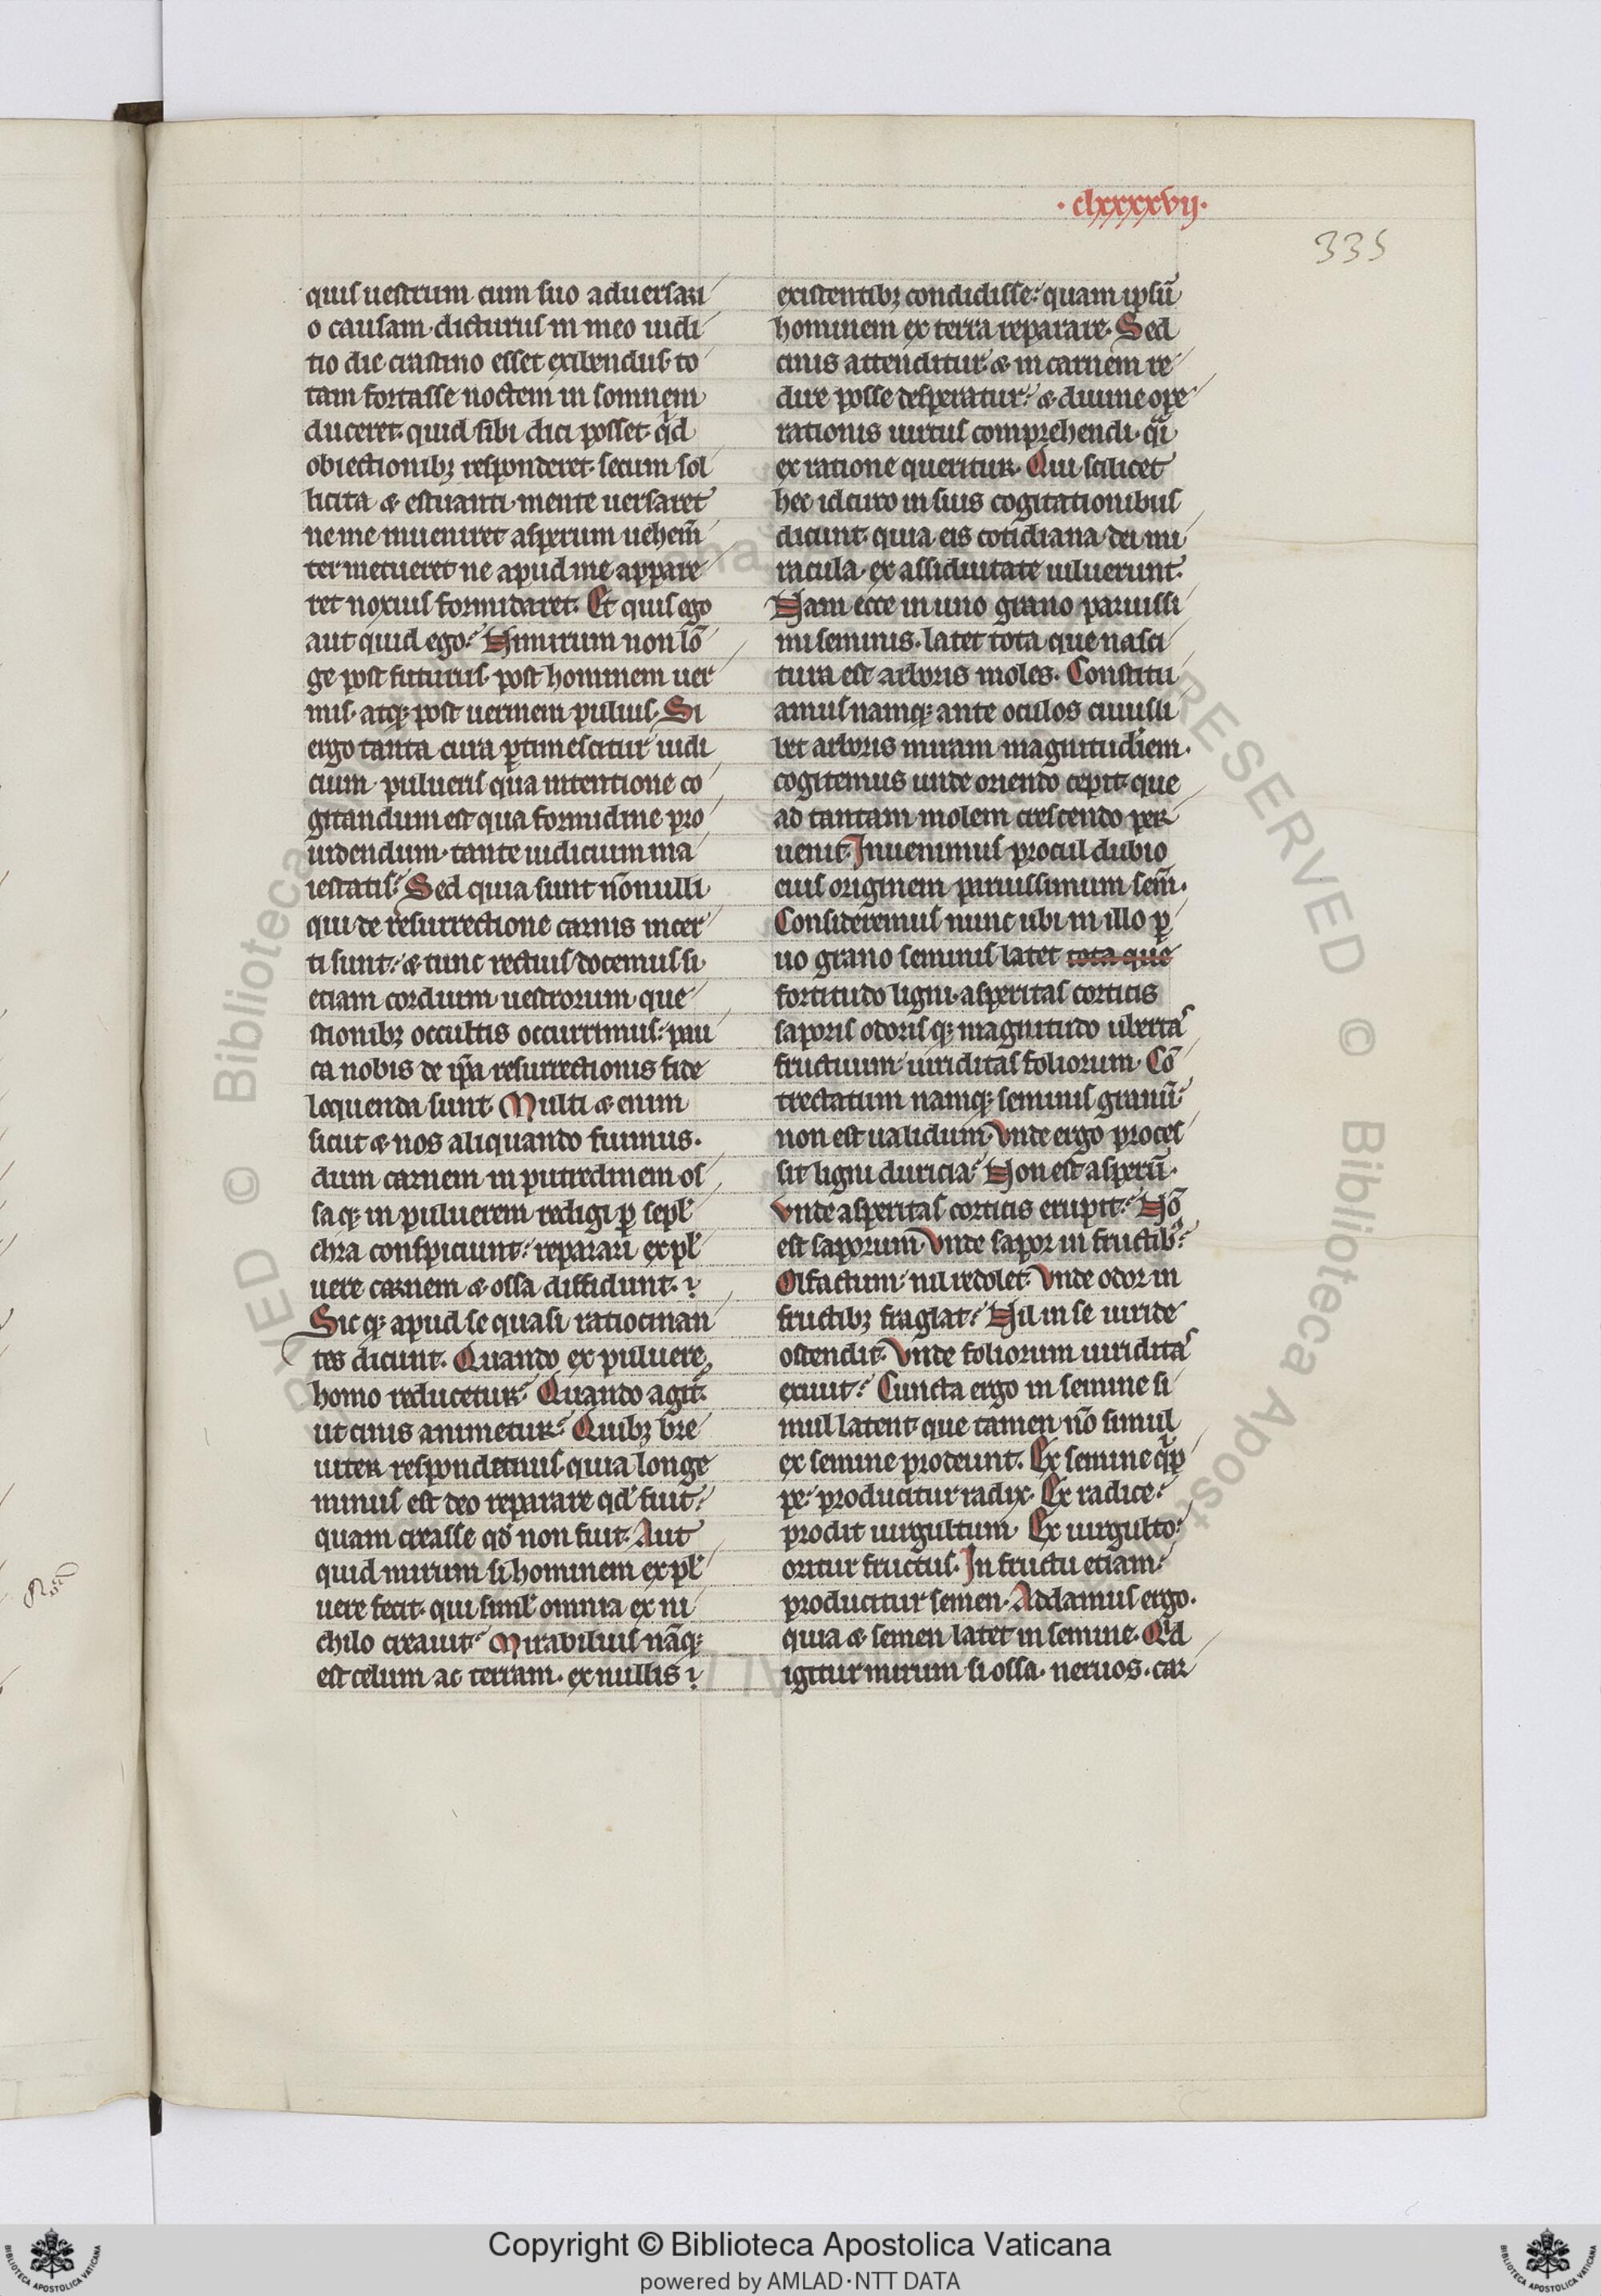 ·clxxxxvij·
335
quis uestrum cum suo aduersari
o causam dicturus in meo iudi
tio die crastino esset exibendus· to
tam fortasse noctem in somnem
duceret· quid sibi dici posset· qͥd
obiectionibꝫ responderet· secum sol
licita & estuanti mente uersaret
ne me inueniret asperum uehem̄
ter metueret ne apud me appare
ret noxius formidaret. Et quis ego
aut quid ego? Nimirum non lō
ge post futurus· post hominem uer
mis· atqꝫ post uermem puluis. Si
ergo tanta cura ꝑtimescitur iudi
cium pulueris qua intentione co
gitandum est qua formidine pro
uidendum· tante iudicium ma
iestatis? Sed quia sunt nōnulli
qui de resurrectione carnis incer
ti sunt: & tunc rectius docemus si
etiam cordium uestrorum que
stionibꝫ occultis occurrimus: pau
ca nobis de ip̄a resurrectionis fide
loquenda sunt. Multi & enim
sicut & nos aliquando fuimus.
dum carnem in putredinem os
saqꝫ in puluerem redigi ꝑ sepl̓
chra conspiciunt: reparari ex pl̓
uere carnem & ossa diffidunt.
Sicqꝫ apud se quasi ratiocinan
tes dicunt. Quando ex puluere
homo reducetur? Quando agit᷑
ut cinis animetur? Quibꝫ bre
uiter respondemus· quia longe
minus est deo reparare qd̓ fuit:
quam creasse qd̓ non fuit. Aut
quid mirum si hominem ex pl̓
uere fecit· qui siml̓ omnia ex ni
chilo creauit? Mirabilius nāqꝫ
est celum ac terram· ex nullis
existentibꝫ condidisse: quam ipsū
hominem ex terra reparare. Sed
cinis attenditur· & in carnem re
dire posse desperatur: & diuine ope
rationis uirtus comprehendi· qͣi
ex ratione queritur. Qui scilicet
hec idcirco in suis cogitationibus
dicunt· quia eis cotidiana dei mi
racula· ex assiduitate uiluerunt.
Nam ecce in uno grano paruissi
mi seminis· latet tota que nasci
tura est arboris moles. Constitu
amus namqꝫ ante oculos cuiusli
bet arboris miram magnitudinem·
cogitemus unde oriendo cepit· que
ad tantam molem crescendo per
uenit. Inuenimus procul dubio
eius originem paruissimum sem̄.
Consideremus nunc ubi in illo ꝑ
uo grano seminis latet tota que
fortitudo ligni· asperitas corticis
saporis odorisqꝫ magnitudo uberta
fructuum· uiriditas foliorum. Cō
trectatum namqꝫ seminis granū
non est ualidum· Vnde ergo proces
sit ligni duricia? Non est asperū·
Vnde asperitas corticis erupit? Nō
est saporum· Vnde sapor in fructibꝰ?
Olfactum· nil redolet· Vnde odor in
fructibꝫ fraglat? Nil in se uiride
ostendit· Vnde foliorum uiridita
exiuit? Cuncta ergo in semine si
mul latent· que tamen nō simul
ex semine prodeunt. Ex semine qͥp
pe· producitur radix. Ex radice:
prodit uirgultum. Ex uirgulto:
oritur fructus. In fructu etiam:
producitur semen. Addamus ergo·
quia & semen latet in semine. Qͥd
igitur mirum si ossa· neruos· car
Copyright © Biblioteca Apostolica Vaticana
powered by AMLAD·NTT DATA